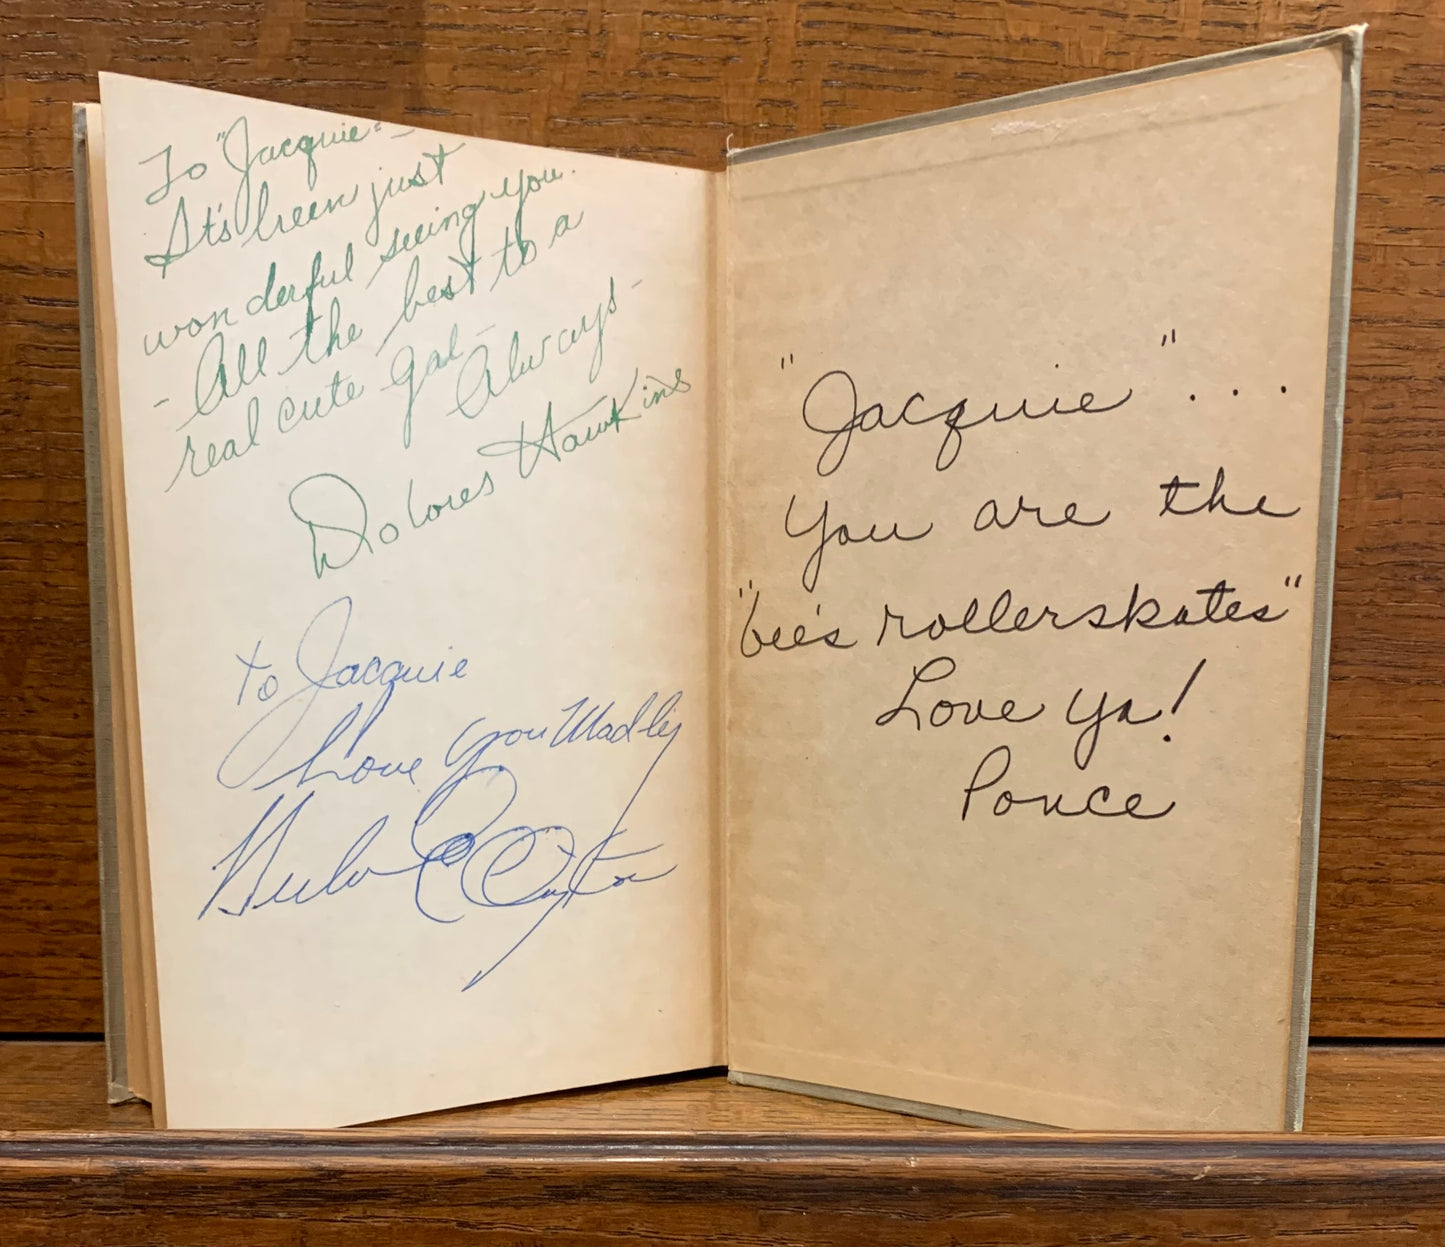 To "Jacquie" -
It's been just
wonderful seeing you.
- All the best to a
real cute gal -
Always -
Dolores Hawkins
To Jacquie
Love you Madly
"Jacquie" ...
You are the
"bee's rollerskates"
Love ya!
Ponce